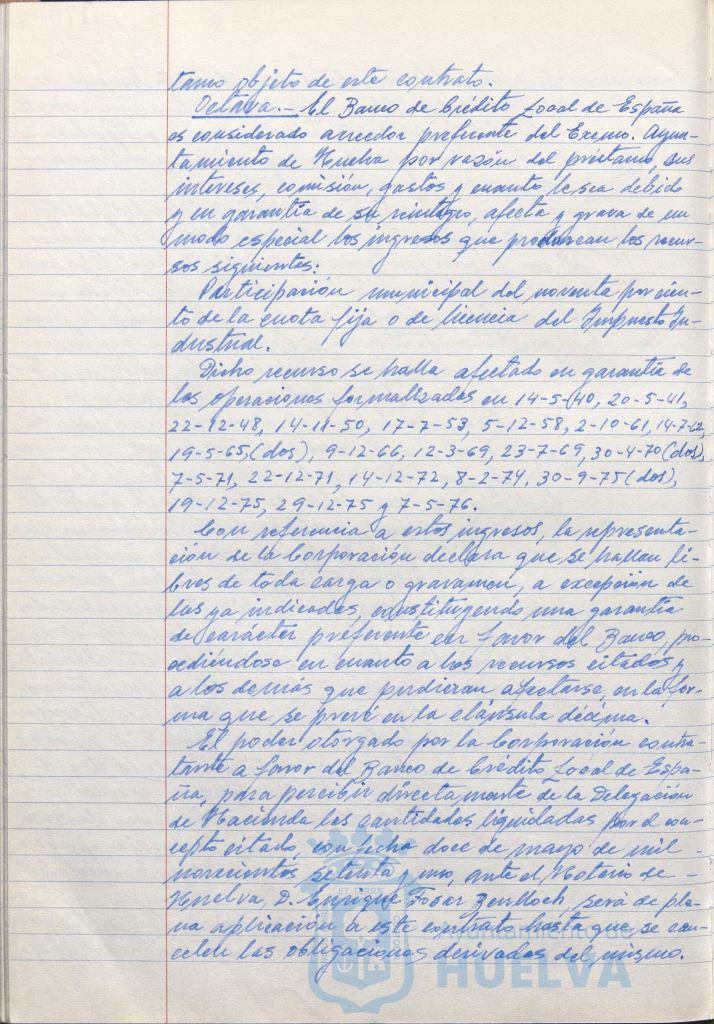 tamo objeto de este contrato.
Octava.- El Banco de Crédito Local de España
es considerado acreedor preferente del Excmo. Ayun-
tamiento de Huelva por razón del préstamo, sus
intereses, comisión, gastos y cuanto le sea debido
y en garantía de su reintegro, afecta y grava de un
modo especial los ingresos que produzcan los recur-
sos siguientes:
Participación municipal del noventa por cien-
to de la cuota fija o de licencia del Impuesto In-
dustrial.
Dicho recurso se halla afectado en garantía de
las operaciones formalizadas en 14-5-40, 20-5-41,
22-12-48, 14-11-50, 17-7-53, 5-12-58, 2-10-61, 14-7-62,
19-5-65,(dos), 9-12-66, 12-3-69, 23-7-69, 30-4-70 (dos),
7-5-71, 22-12-71, 14-12-72, 8-2-74, 30-9-75 (dos),
19-12-75, 29-12-75 y 7-5-76.
Con referencia a estos ingresos, la representa-
ción de la Corporación declara que se hallan li-
bres de toda carga o gravamen, a excepción de
las ya indicadas, constituyendo una garantía
de carácter preferente en favor del Banco, pro-
cediéndose en cuanto a los recursos citados y
a los demás que pudieran afectarse, en la for-
ma que se prevé en la cláusula décima.
El poder otorgado por la Corporación contra-
tante a favor del Banco de Crédito Local de Espa-
ña, para percibir directamente de la Delegación
de Hacienda las cantidades liquidadas por el con-
cepto citado, con fecha doce de mayo de mil
novecientos setenta y uno, ante el Notario de
Huelva, D. Enrique Fosar Benlloch, será de ple-
na aplicación a este contrato hasta que se can-
celen las obligaciones derivadas del mismo.
Ayuntamiento de
HUELVA